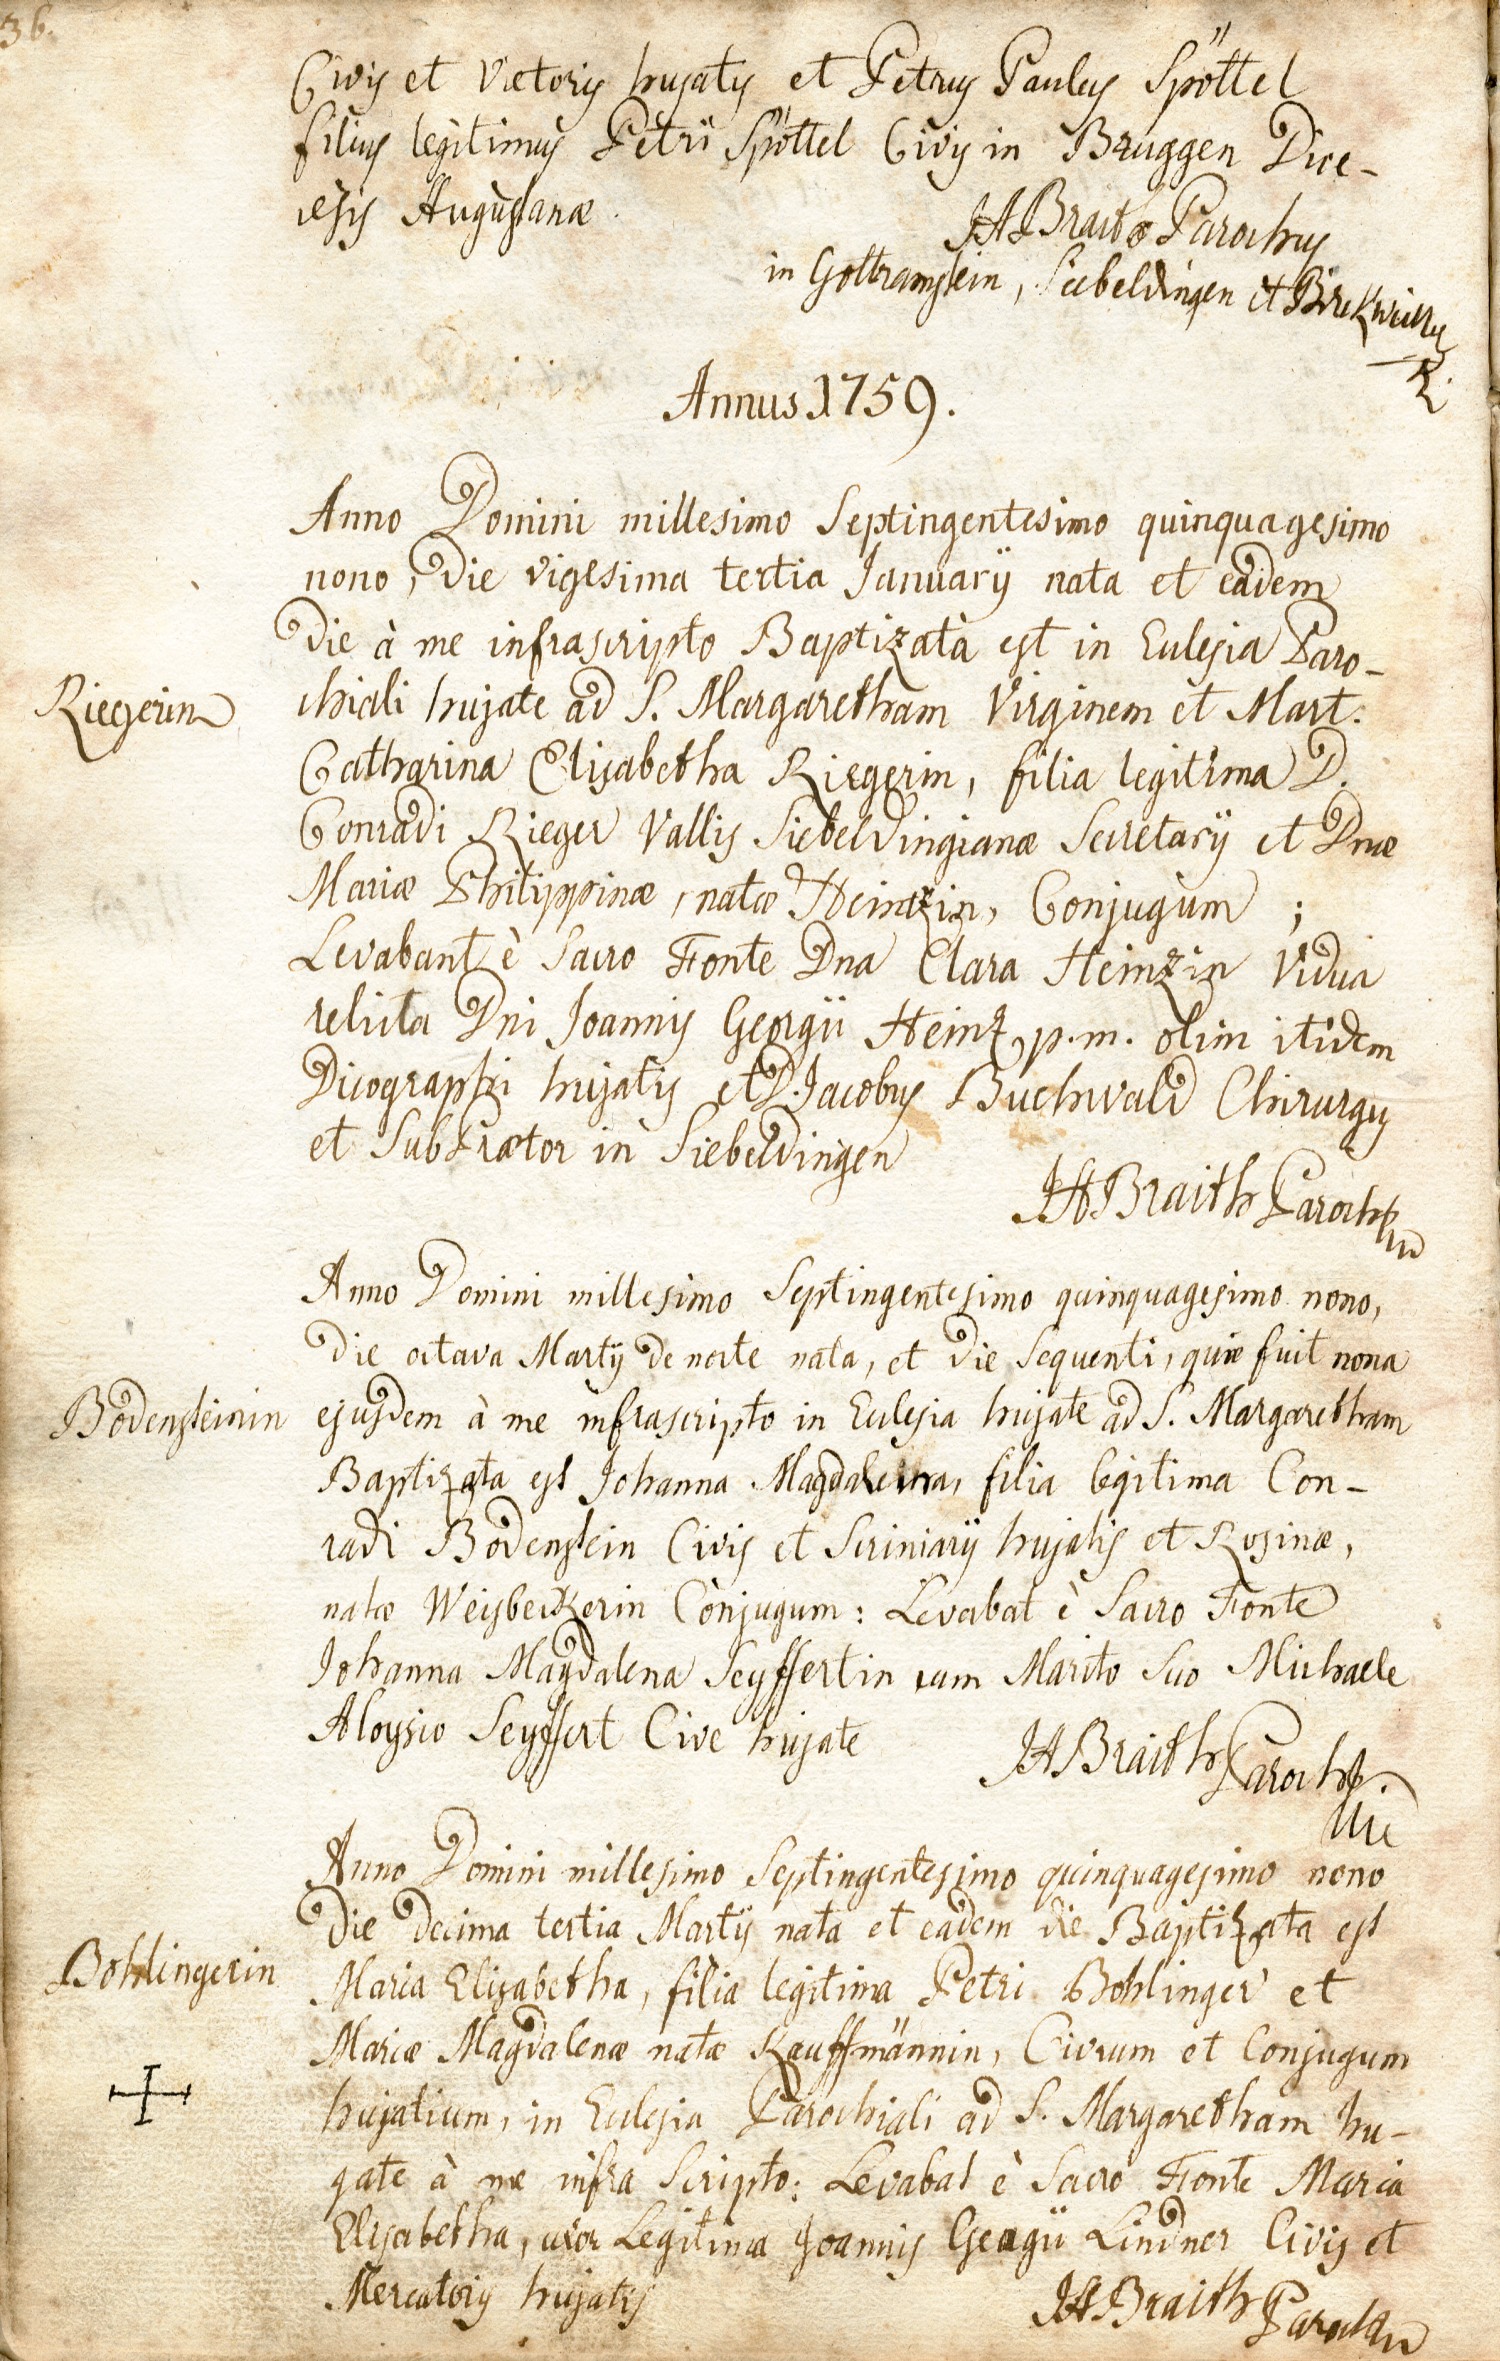 36.
Civis et Viëtoris hujatis et Petrus Paulus Spöttel
filius legitimus Petri Spöttel Civis in Bruggen Dioe-
cesis Augustanæ.
JA Braith Parochus
in Gottramstein, Siebeldingen et Birckweiler
Annus 1759.
Anno Domini millesimo Septingentesimo quinquagesimo
nono, die vigesima tertia Januarÿ nata et eâdem
Die à me infrascripto Baptizata est in Ecclesia Paro-
Riegerin
chiali hujate ad S. Margaretham Virginem et Mart.
Catharina Elisabetha Riegerin, filia legitima D.
Conradi Rieger Vallis Siebeldingianæ Secretarÿ et Dnæ
Mariæ Philippinæ, natæ Heintzin, Conjugum ;
Levabant è Sacro Fonte Dna Clara Heinzin Vidua
relicta Dni Joannis Georgii Heinz p.m. olim itidem
Dicographi hujatis et D. Jacobus Buchwald Chirurgus
et Subpræetor in Siebeldingen
JA Braith Parochus
Anno Domini millesimo Septingentesimo quinquagesimo nono,
Die octava Martÿ de nocte nata, et die Sequenti, quæ fuit nona
Bodensteinin
ejusdem à me infrascripto in Ecclesia hujate ad S. Margaretham
Baptizata est Johanna Magdalena, filia legitima Con-
radi Bodenstein Civis et Scriniarÿ hujatis et Rosinæ,
natæ Weisbeckerin Conjugum: Levabat è Sacro Fonte
Johanna Magdalena Seyffertin cum Marito Suo Michaele
Aloysio Seyffert Cive hujate
JA Braith Parochus
Anno Domini millesimo Septingentesimo quinquagesimo nono
Die decima tertia Martÿ nata et eadem die Baptizata est
Bohlingerin
Maria Elisabetha, filia legitima Petri Bohlinger et
Mariæ Magdalenæ natæ Kauffmännin, Civium et Conjugum
hujatium, in Ecclesia Parochiali ad S. Margaretham hu-
jate à me infra Scripto: Levabat è Sacro Fonte Maria
Elisabetha, uxor Legitima Joannis Georgii Lindner Civis et
Mercatoris hujatis
JA Braith Parochus